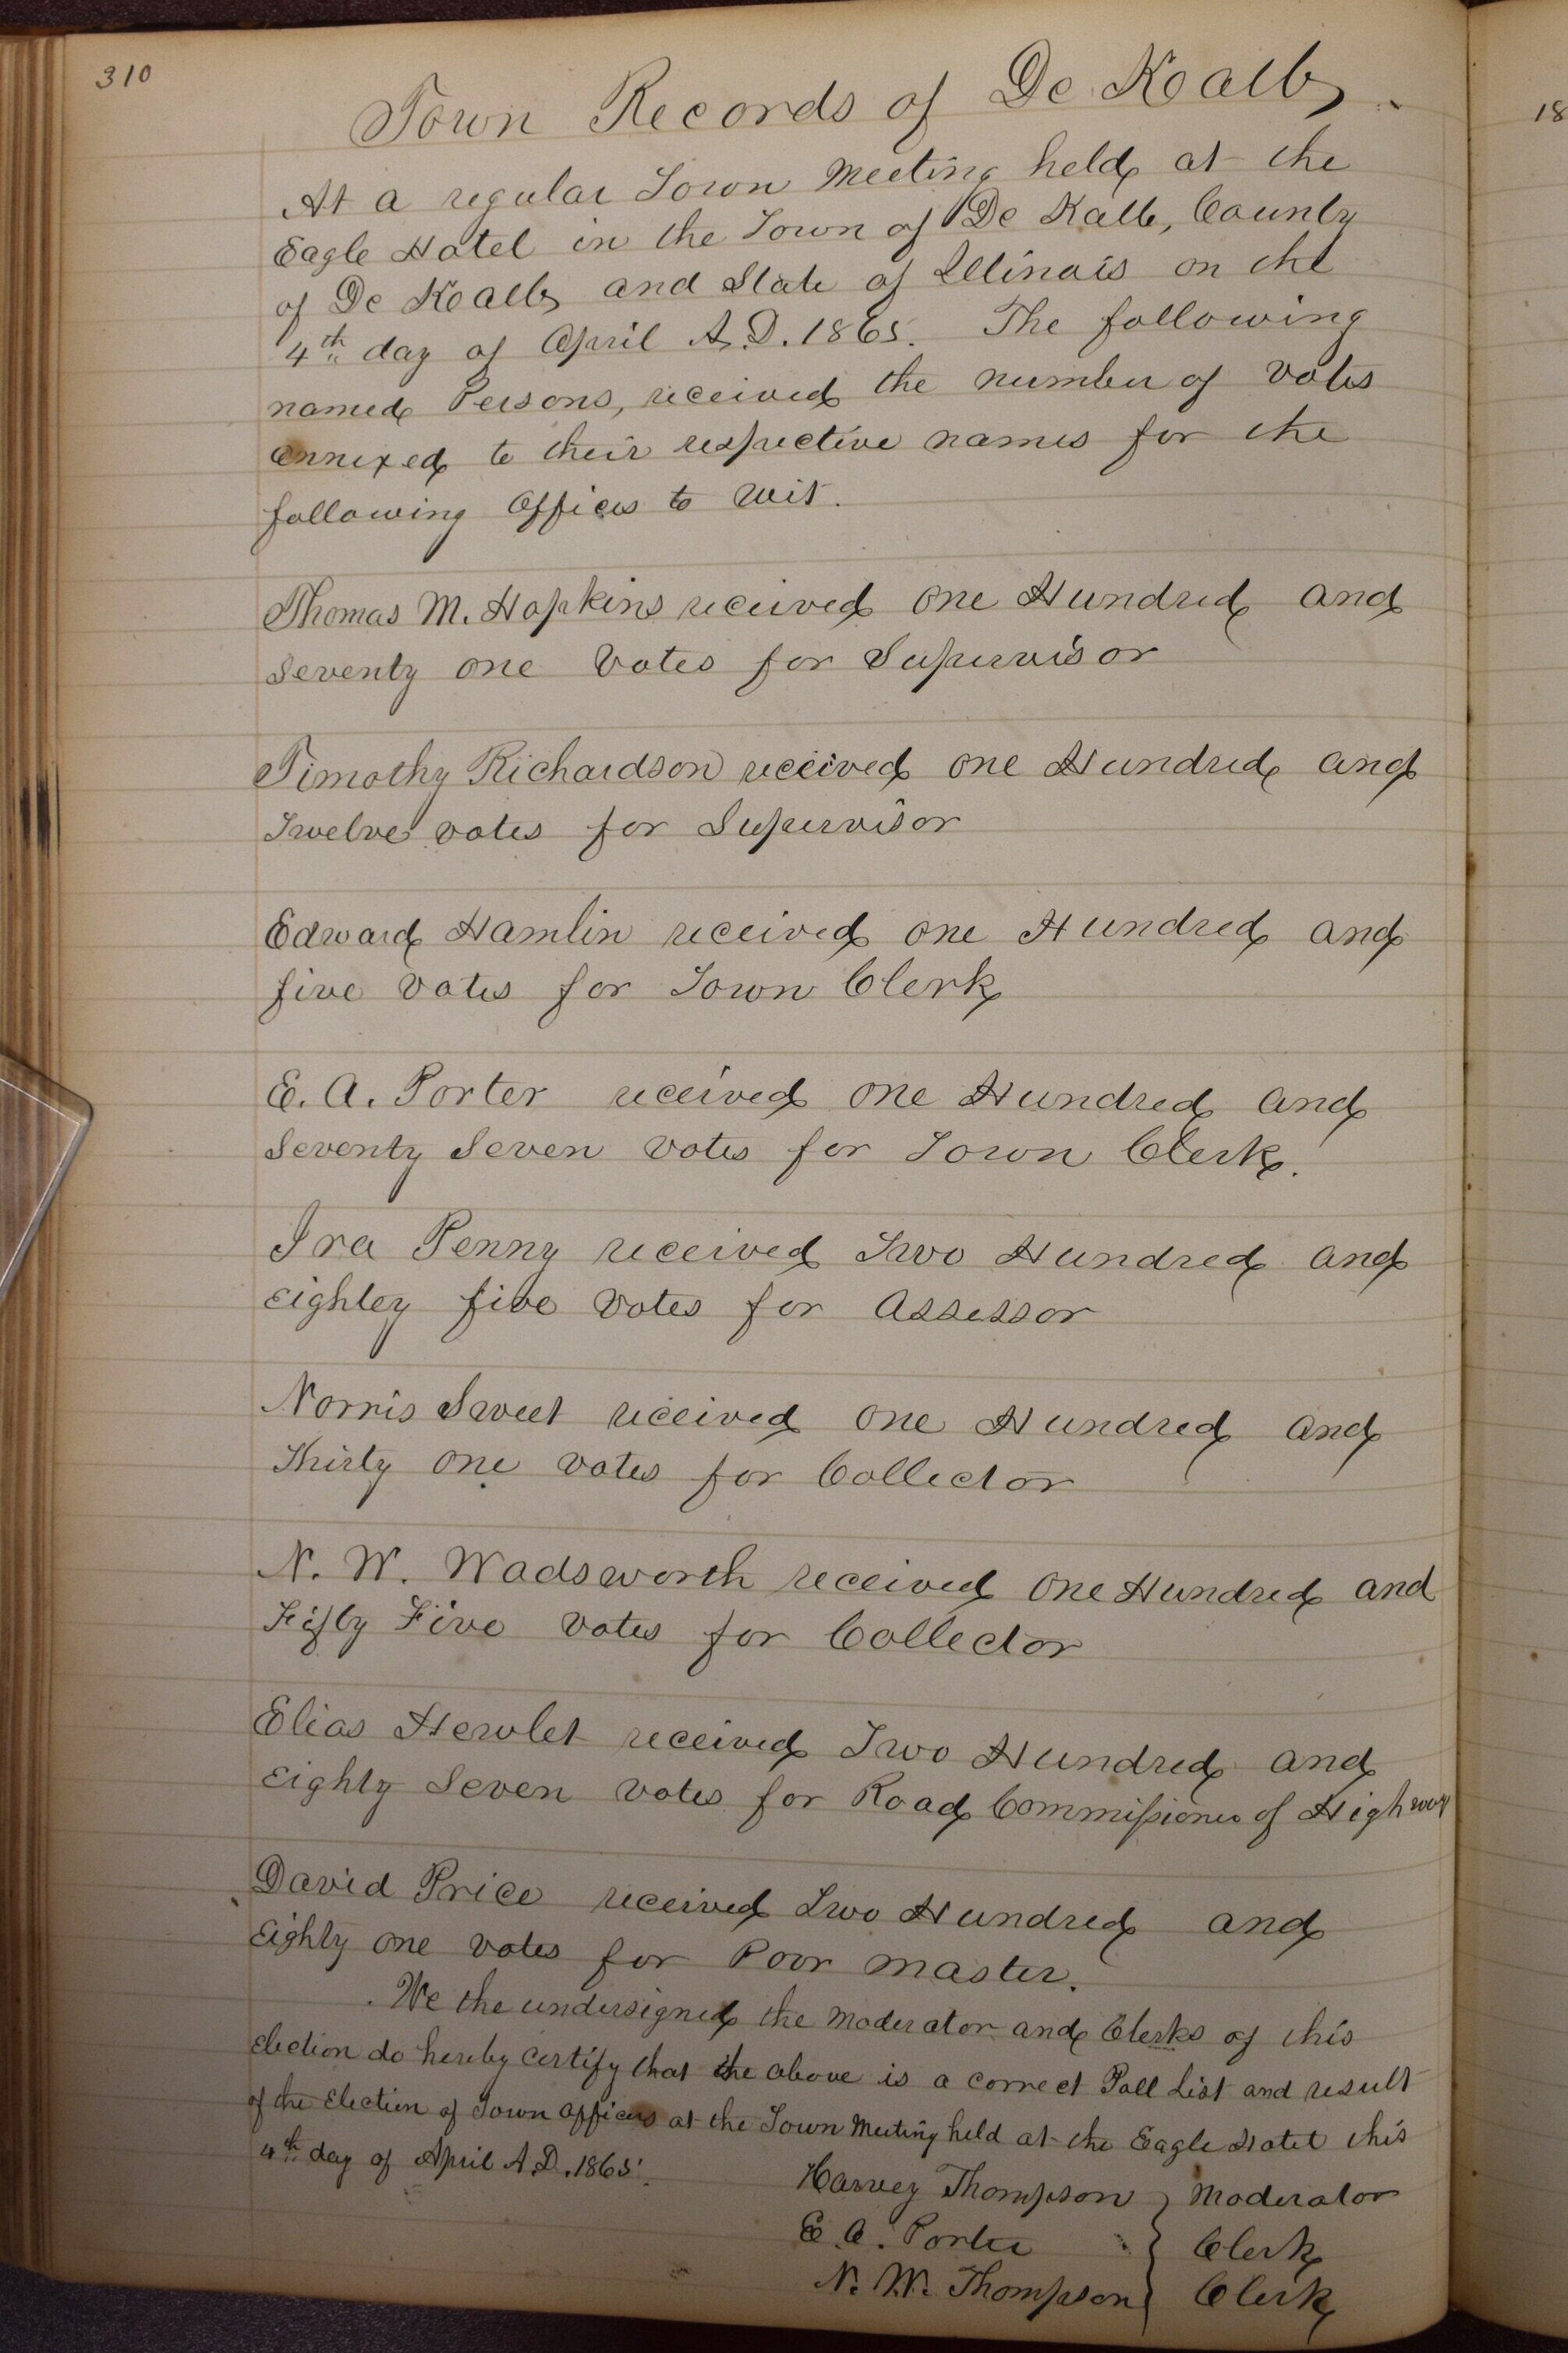 310
Town Records of De Kalb
At a regular Town Meeting held at the
Eagle Hotel in the Town of De Kalb, County
of De Kalb and State of Illinois on the
4th day of April A.D. 1865. The following
named Persons, received the number of votes
annexed to their respective names for the
following Offices to wit.
Thomas M. Hopkins received one Hundred and
Seventy one Votes for Supervisor
Timothy Richardson received one Hundred and
Twelve votes for Supervisor
Edward Hamlin received one Hundred and
five votes for Town Clerk
E. A. Porter received one Hundred and
Seventy Seven votes for Town Clerk.
Ira Penny received Two Hundred and
eightey five votes for Assessor
Norris Sweet received one Hundred and
Thirty one votes for Collector
N. W. Wadsworth received One Hundred and
Fifty Five votes for Collector
Elias Hewlet received Two Hundred and
eighty Seven votes for Road Commissioner of Highway
David Price received Two Hundred and
Eighty one votes for Poor master.
We the undersigned the Moderator and Clerks of this
Election do hereby certify that the above is a correct Poll List and result
of the Election of Town officers at the Town Meeting held at the Eagle Hotel this
4th day of April A.D. 1865.
Harvey Thompson } Moderator
E. A. Porter } Clerk
N. W. Thompson } Clerk
18